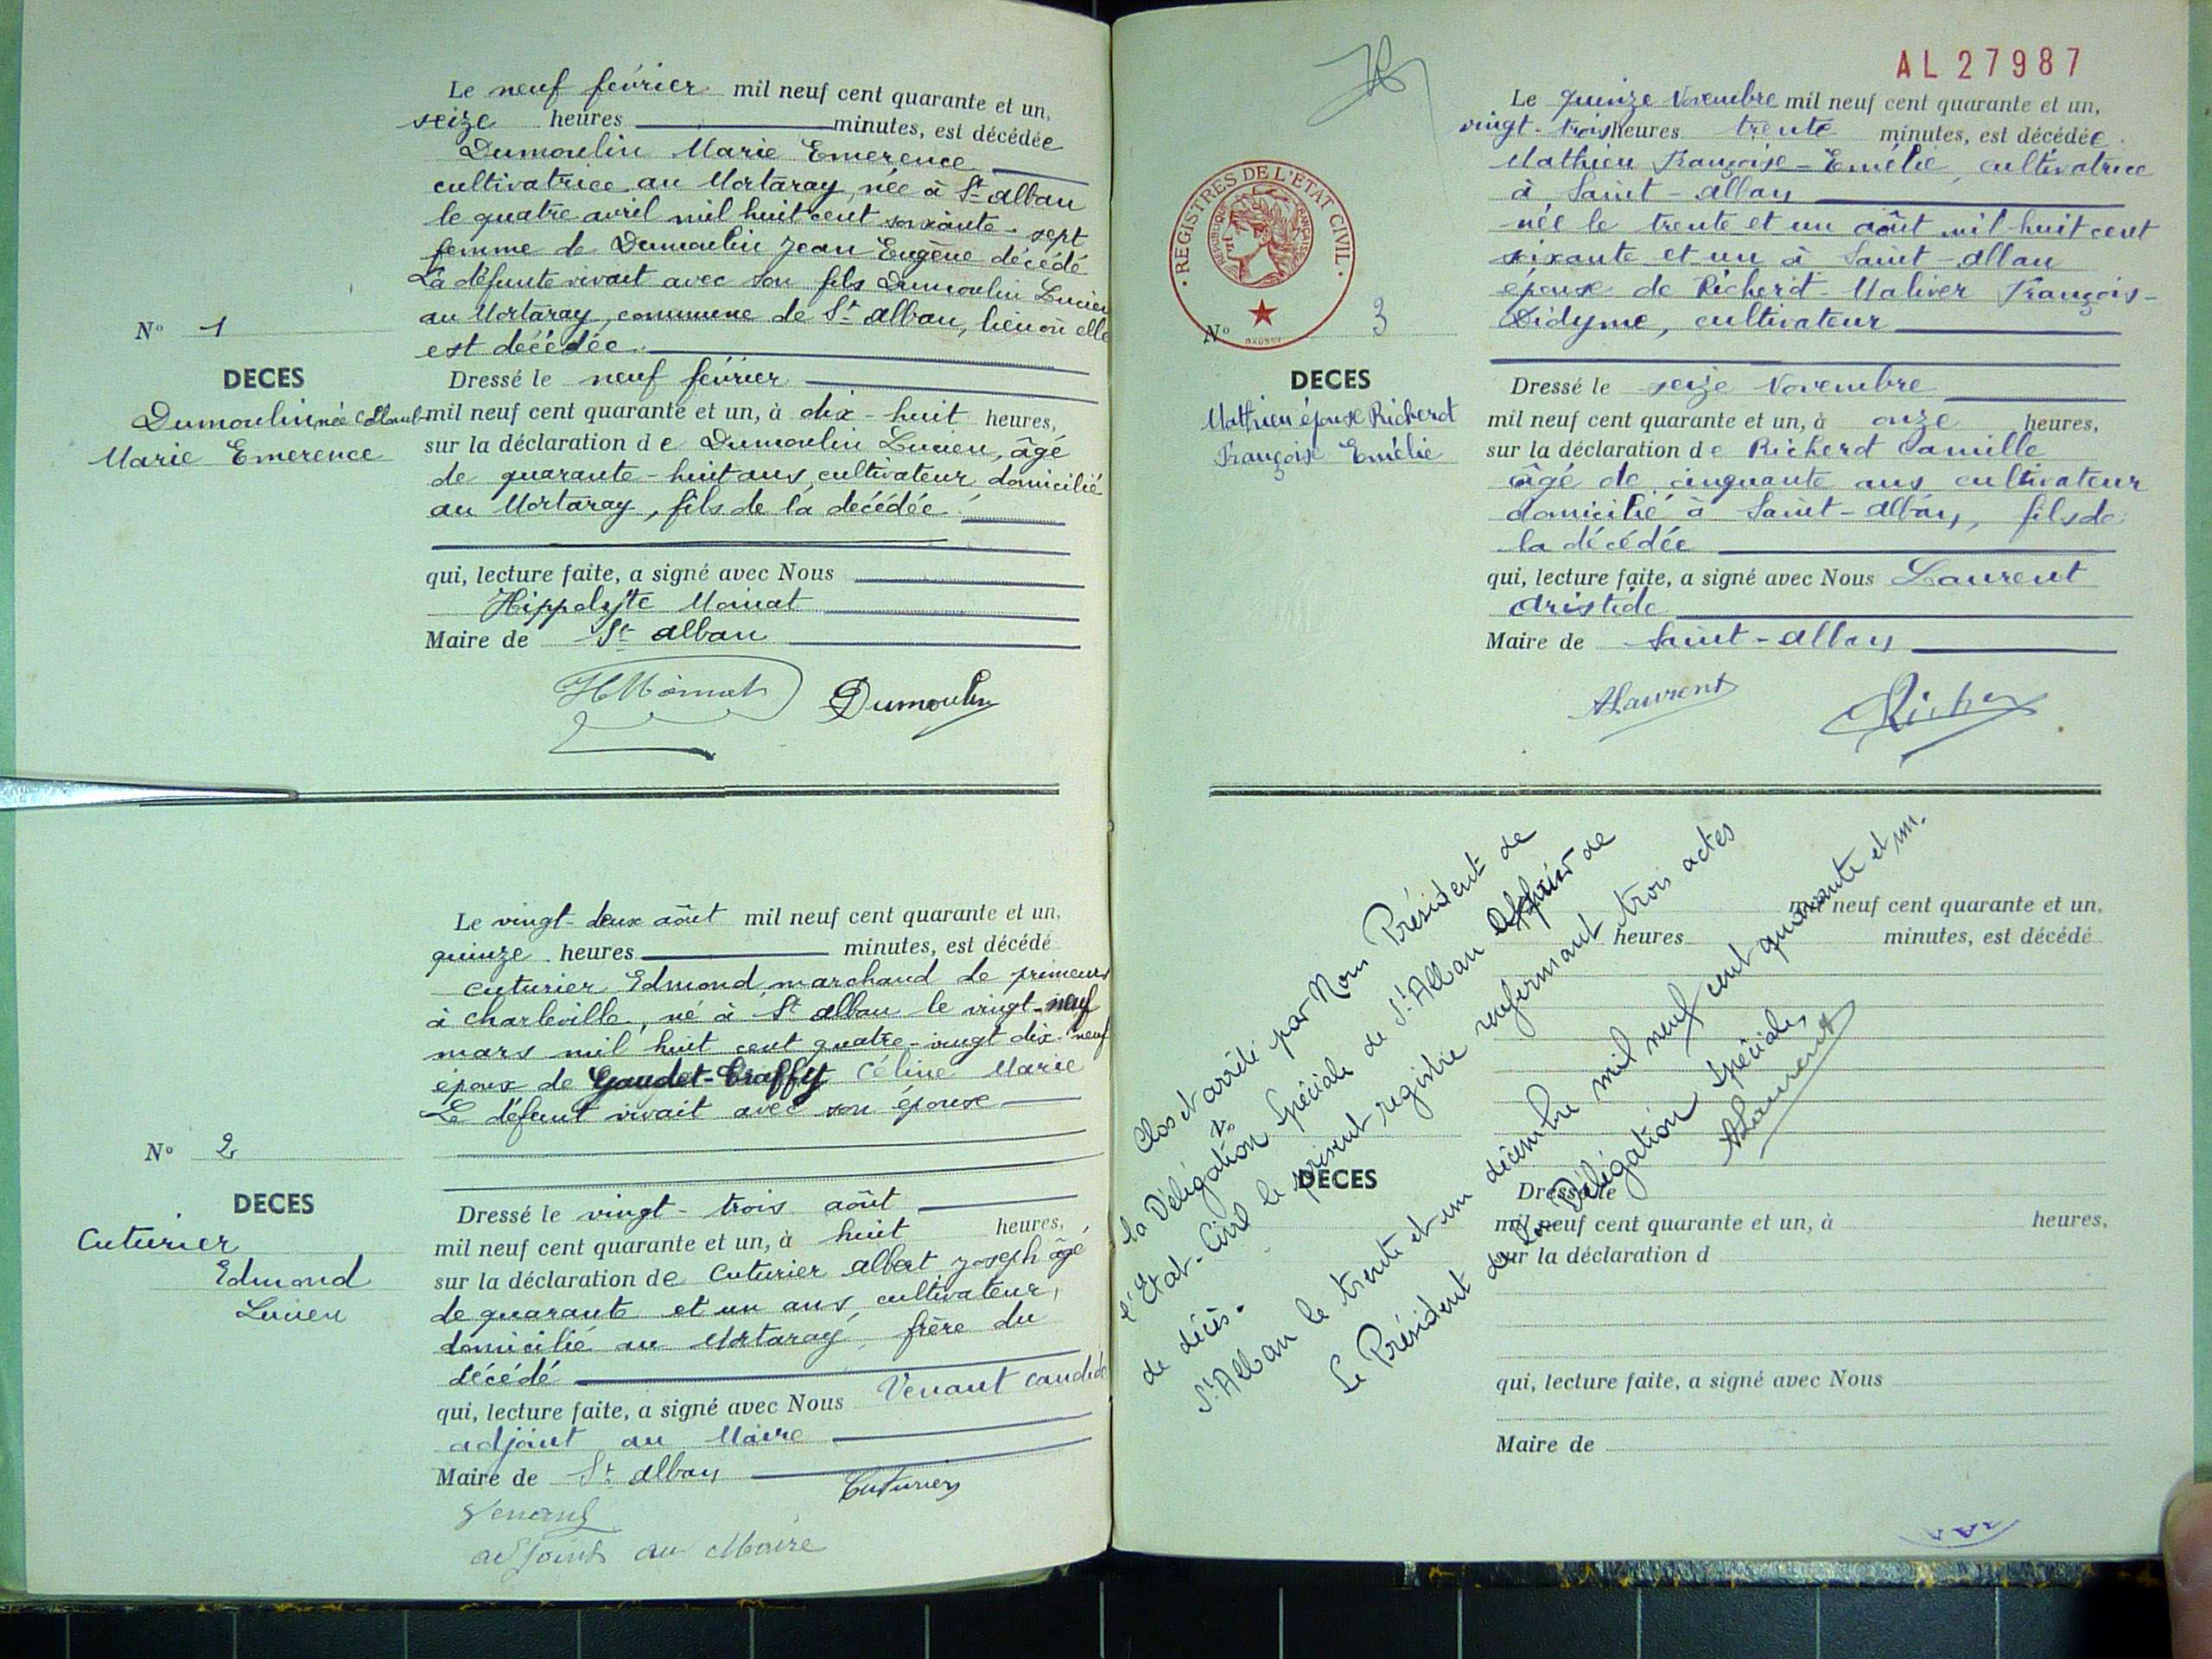 Le neuf février mil neuf cent quarante et un,
seize heures minutes, est décédée
Dumoulin Marie Emerence
cultivatrice au Mortaray, née à St alban
le quatre avril mil huit cent soixante-sept
femme de Dumoulin Jean Eugène décédé
La défunte vivait avec son fils Dumoulin Lucien
au Mortaray, commune de St alban, lieu où elle
est décédée.
N° 1
DECES
Dumoulin née
Marie Emerence
Dressé le neuf février
mil neuf cent quarante et un, à dix-huit heures,
sur la déclaration de Dumoulin Lucien, âgé
de quarante-huit ans, cultivateur, domicilié
au Mortaray, fils de la décédée.
qui, lecture faite, a signé avec Nous
Hippolyte Moinat
Maire de St alban
HMoinat Dumoulin
Le vingt-deux août mil neuf cent quarante et un,
quinze heures minutes, est décédé
Cuturier Edmond, marchand de primeurs
à Charleville, né à St alban le vingt-neuf
mars mil huit cent quatre-vingt dix-neuf
époux de Gaudet-Traffit Céline Marie
Le défunt vivait avec son épouse
N° 2
DECES
Cuturier
Edmond
Lucien
Dressé le vingt-trois août
mil neuf cent quarante et un, à huit heures,
sur la déclaration de Cuturier albert joseph âgé
de quarante et un ans, cultivateur,
domicilié au Mortaray, frère du
décédé
qui, lecture faite, a signé avec Nous Venant Candide
adjoint au Maire
Maire de St alban
Cuturier
Venant
adjoint au Maire
AL 27987
REGISTRES DE L'ETAT CIVIL
REPUBLIQUE FRANÇAISE
Le quinze Novembre mil neuf cent quarante et un,
vingt-trois heures trente minutes, est décédée
Mathieu Françoise-Emélie, cultivatrice
à Saint-alban
née le trente et un août mil huit cent
soixante et un à Saint-alban
épouse de Richerd-Maliver François-
Didyme, cultivateur
N° 3
DECES
Mathieu épouse Richerd
Françoise Emélie
Dressé le seize Novembre
mil neuf cent quarante et un, à onze heures,
sur la déclaration de Richerd Camille
âgé de cinquante ans cultivateur
domicilié à Saint-alban, fils de
la décédée
qui, lecture faite, a signé avec Nous Laurent
aristide
Maire de Saint-alban
ALaurent Richerd
mil neuf cent quarante et un,
heures minutes, est décédé
N°
DECES
Dressé le
mil neuf cent quarante et un, à heures,
sur la déclaration d
qui, lecture faite, a signé avec Nous
Maire de
Clos et arrêté par Nous Président de
la Délégation Spéciale de St Alban Officier de
l'Etat-Civil le présent registre renfermant trois actes
de décès.
St Alban le trente et un décembre mil neuf cent quarante et un.
Le Président de la Délégation Spéciale,
ALaurent